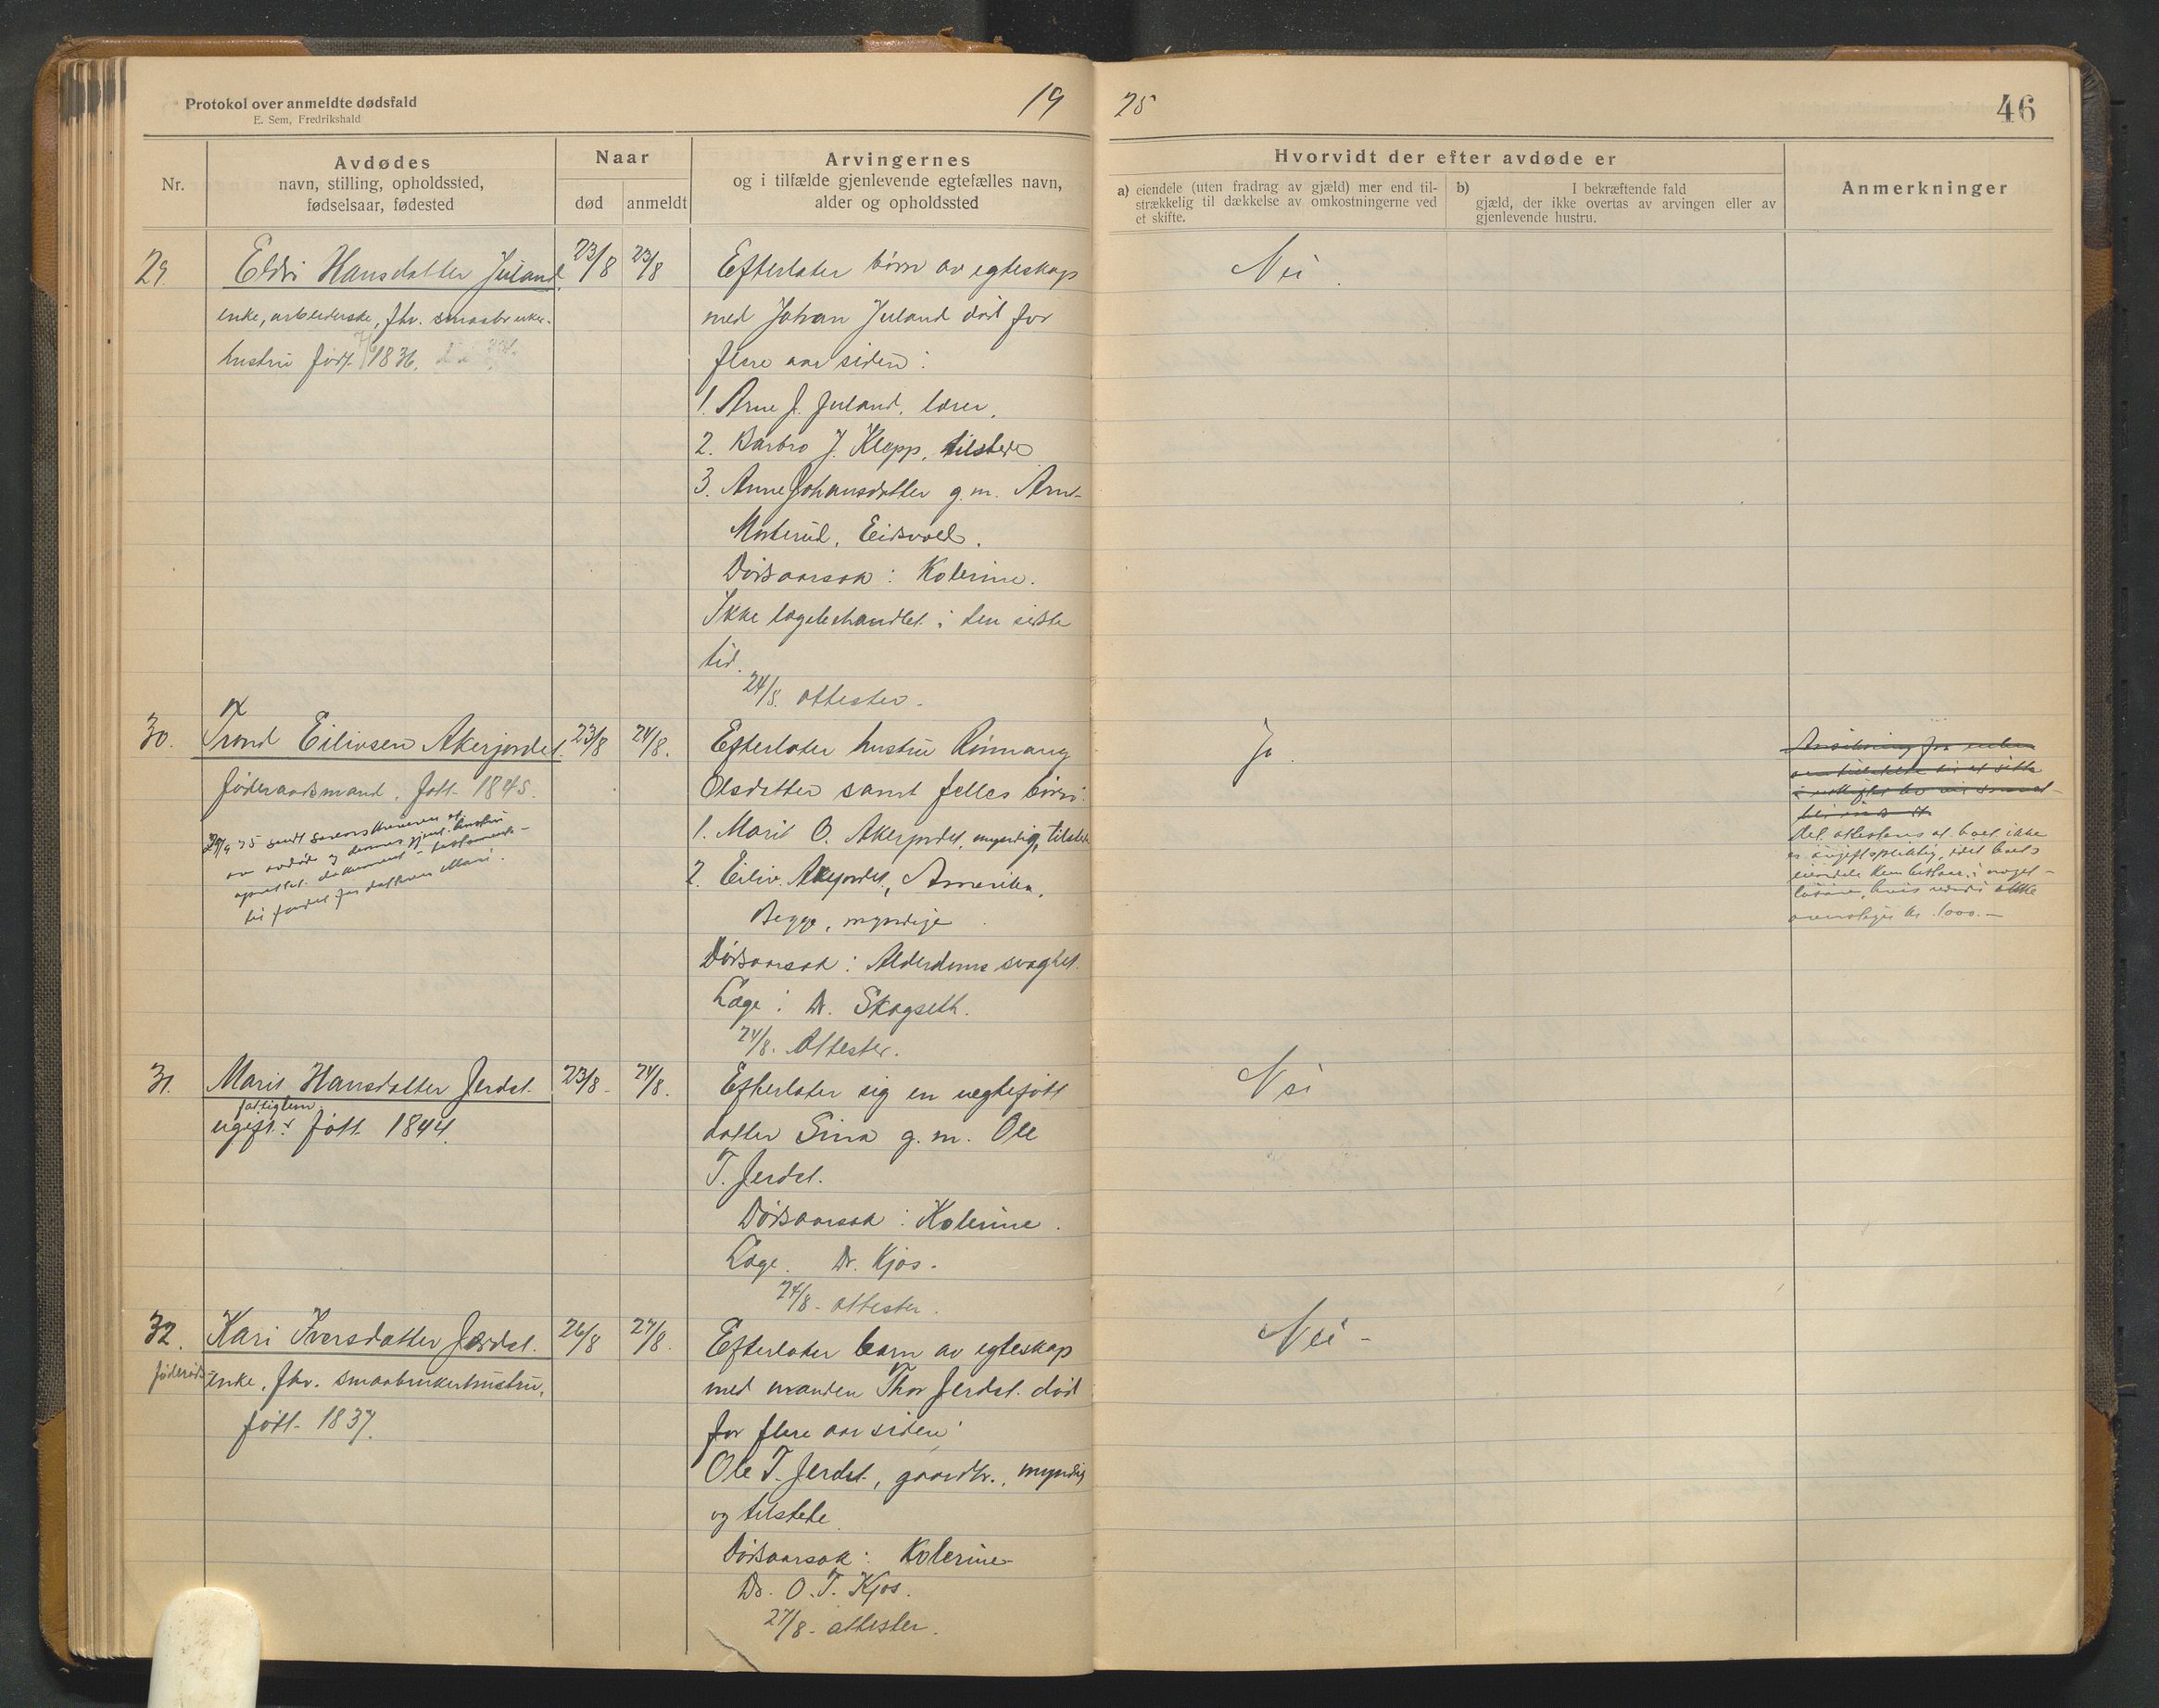 Protokol over anmeldte dødsfald
E. Sem, Fredrikshald
19 25
46
Nr.
Avdødes
navn, stilling, opholdssted,
fødselsaar, fødested
Naar
død
anmeldt
Arvingernes
og i tilfælde gjenlevende egtefælles navn,
alder og opholdssted
Hvorvidt der efter avdøde er
a) eiendele (uten fradrag av gjæld) mer end til-
strækkelig til dækkelse av omkostningerne ved
et skifte.
b) I bekræftende fald
gjæld, der ikke overtas av arvingen eller av
gjenlevende hustru.
Anmerkninger
29. Eldri Hansdatter Juland. 23/8 23/8
enke, arbeiderske, fhv. smaabruker-
hustru født 7/6 1836.
Efterlater børn av egteskap
med Johan Juland død for
flere aar siden:
1. Arne J. Juland, lærer.
2. Barbro J. Klepp, tilstede
3. Anne Johansdatter g.m. Arne
Morterud, Eidsvoll.
Dødsaarsak: Kolerine.
Ikke lægebehandlet i den siste
tid.
24/8. attester.
Nei.
30. Trond Eilivsen Akerjordet. 23/8 24/8.
føderaadsmand, født 1845.
29/9 25 sendt sorenskriveren et
av avdøde og dennes gjenl. hustru
oprettet dokument - testament -
til fordel for datteren Mari.
Efterlater hustru Rønnaug
Olsdatter samt felles børn:
1. Marit O. Akerjordet, myndig, tilstede
2. Eiliv Akerjordet, Amerika.
Begge myndige.
Dødsaarsak: Alderdoms svaghet.
Læge: Dr. Skogseth.
24/8. Attester.
Ja.
Det attesteres at boet ikke
er avgiftspliktig, idet boets
eiendele kun bestaar i noget
løsøre, hvis verdi ikke
overstiger kr. 1000.-
31. Marit Hansdatter Jerdet. 23/8. 24/8.
fattiglem
ugift. født 1844.
Efterlater sig en uegtefødt
datter Sina g.m. Ole
T. Jerdet.
Dødsaarsak: Kolerine.
Læge. Dr. Kjos.
24/8. attester.
Nei
32. Kari Iversdatter Jerdet. 26/8 27/8.
føderaads
enke, fhv. smaabrukerhustru,
født 1837.
Efterlater barn av egteskap
med manden Thor Jerdet død
for flere aar siden:
Ole T. Jerdet, gaardbr., myndig
og tilstede
Dødsaarsak: Kolerine
Dr. O.T. Kjos.
27/8. attester.
Nei -